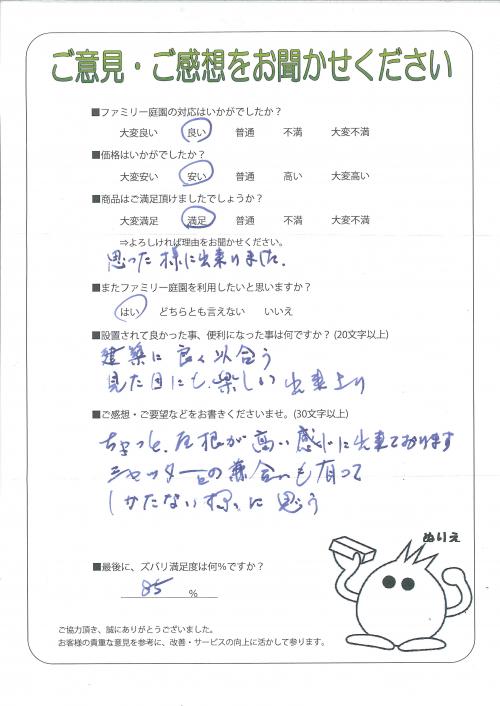 ご意見・ご感想をお聞かせください
■ファミリー庭園の対応はいかがでしたか？
大変良い 良い 普通 不満 大変不満
■価格はいかがでしたか？
大変安い 安い 普通 高い 大変高い
■商品はご満足頂けましたでしょうか？
大変満足 満足 普通 不満 大変不満
⇒よろしければ理由をお聞かせください。
思った様に出来りました。
■またファミリー庭園を利用したいと思いますか？
はい どちらとも言えない いいえ
■設置されて良かった事、便利になった事は何ですか？(20文字以上)
建築に良く似合う
見た目にも楽しい出来上り
■ご感想・ご要望などをお書きくださいませ。(30文字以上)
ちょっと、屋根が高い感じに出来ております
シャッターとの兼合いも有って
しかたない様に思う
ぬりえ
■最後に、ズバリ満足度は何％ですか？
85 ％
ご協力頂き、誠にありがとうございました。
お客様の貴重な意見を参考に、改善・サービスの向上に活かして参ります。